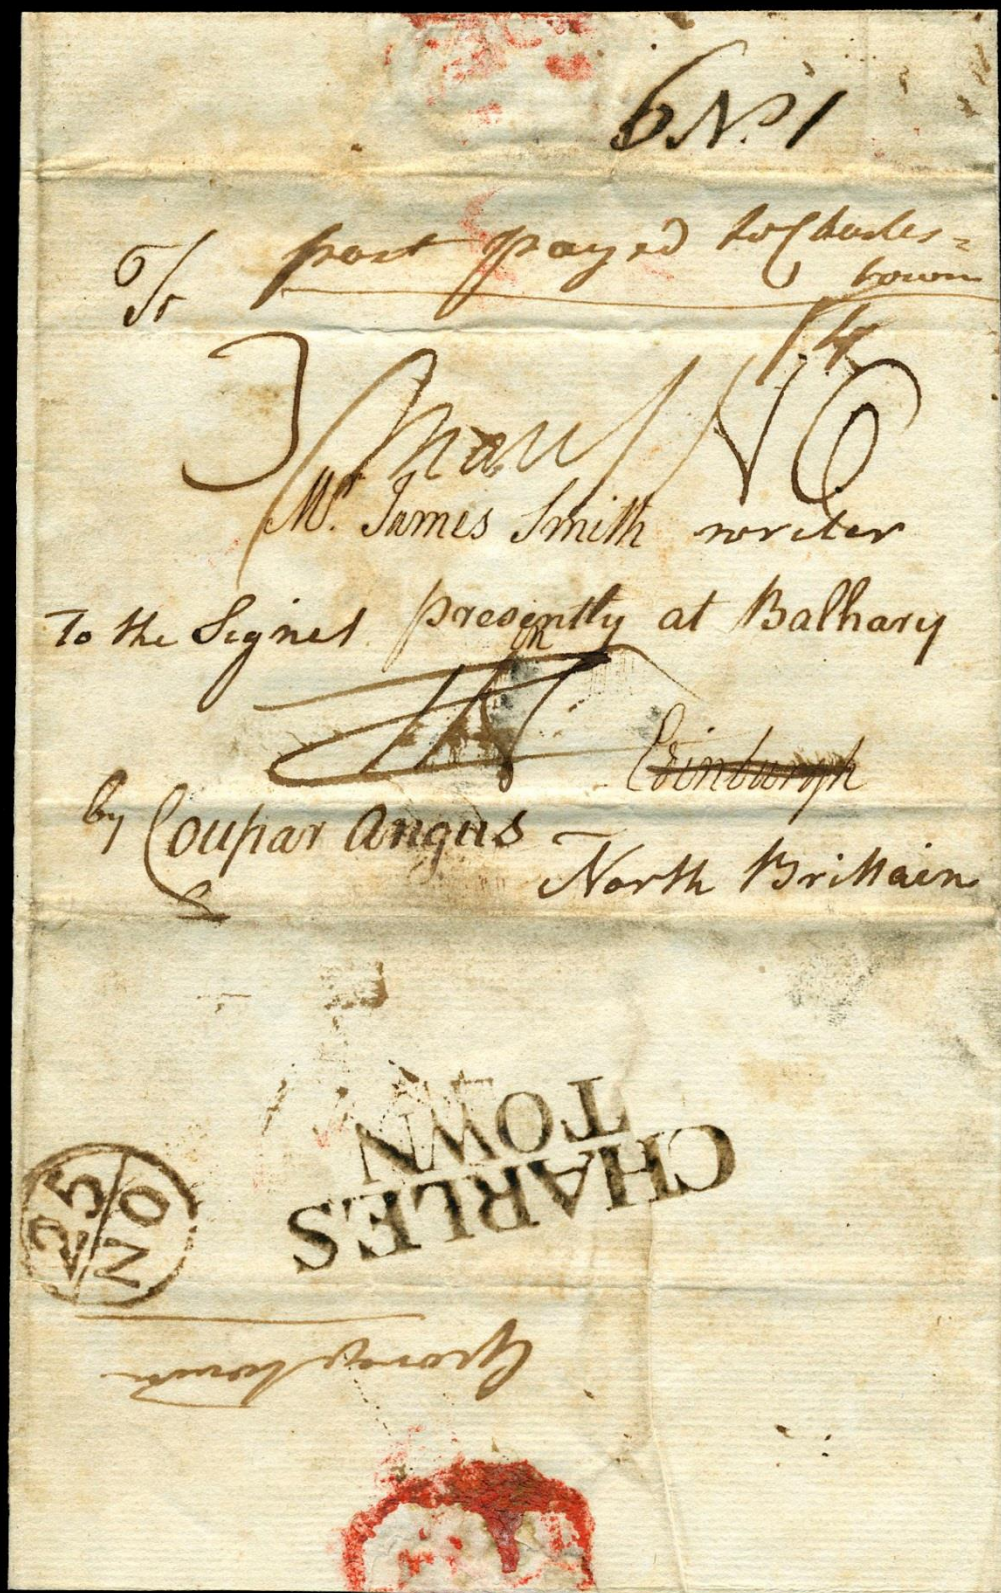 6 No. 1
To post payed to Charles=
town
Mr. James Smith writer
To the Signet presently at Balhary
Edinburgh
by Coupar Angus
North Brittain
CHARLES
TOWN
25
NO
Georgetown